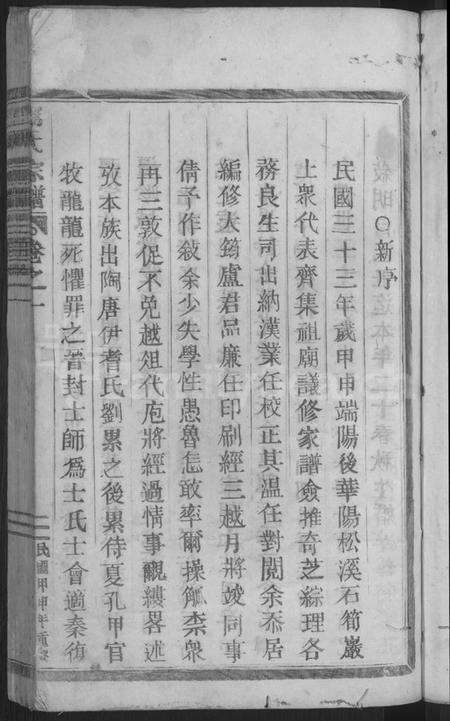 ○新序
民國三十三年歲甲申端陽後華陽松溪石筍巖
上眾代表齊集祖廟議修家譜僉推奇芝綜理各
務良生司出納漢業任校正其溫任對閱余忝居
編修大筠盧君品廉任印刷經三越月將竣同事
倩予作敍余少失學性愚魯怎敢率爾操觚柰眾
再三敦促不免越俎代庖將經過情事覼縷畧述
攷本族出陶唐伊耆氏劉累之後累侍夏孔甲官
牧龍龍死懼罪之晉封士師為士氏士會適秦後
氏宗譜
卷之一
民國甲申年重修